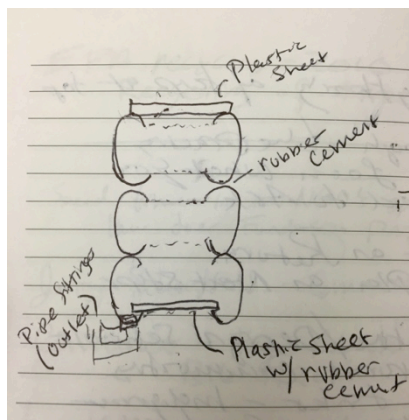 Plastic
Sheet
rubber
cement
Pipe fittings
(outlet)
Plastic Sheet
w/ rubber
cement